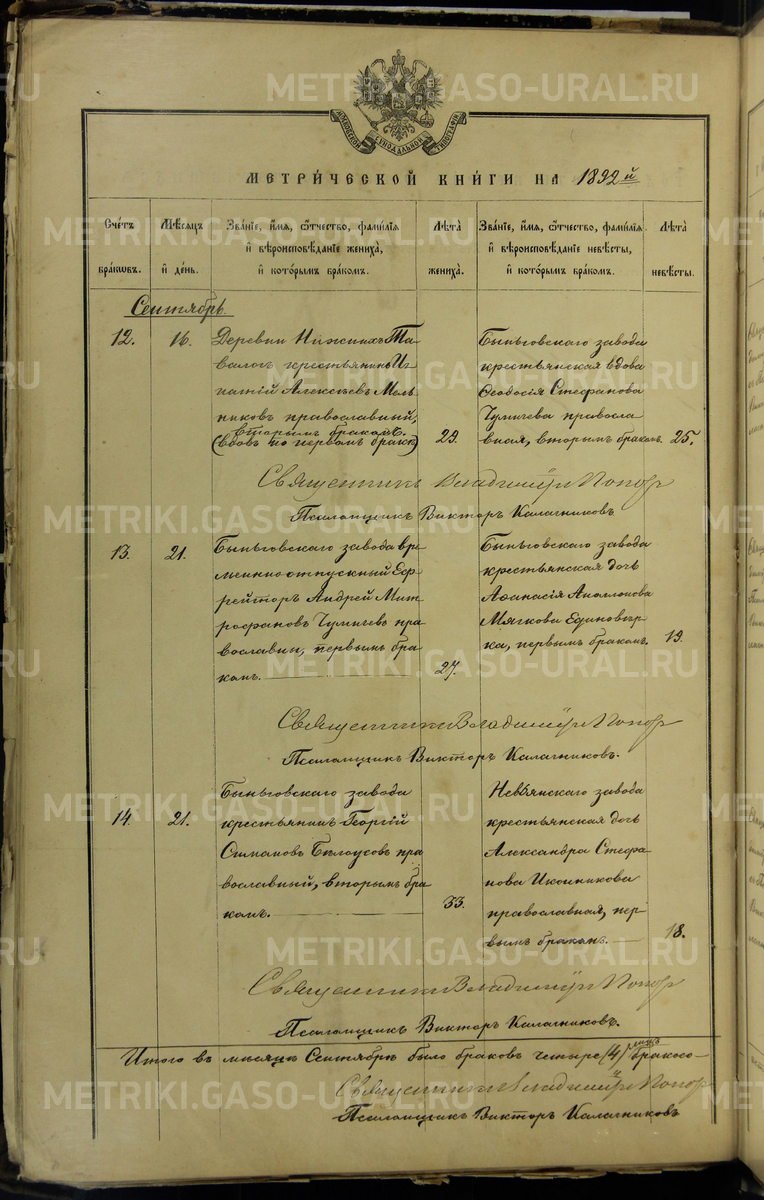 METRIKI.GASO-URAL.RU
МОСКОВСКОЙ СѴНОДАЛЬНОЙ ТИПОГРАФІИ
МЕТРИ́ЧЕСКОЙ КНИ́ГИ НА 1892й
Сче́тъ бра́кѡвъ.
Мѣ́сяцъ и҆ де́нь.
Зва́нїе, и҆́мя, ѻ҆́тчество, фами́лїя и҆ вѣроисповѣ́данїе жениха̀, и҆ кото́рымъ бра́комъ.
Лѣ́та жениха̀.
Зва́нїе, и҆́мя, ѻ҆́тчество, фами́лїя и҆ вѣроисповѣ́данїе невѣ́сты, и҆ кото́рымъ бра́комъ.
Лѣ́та невѣ́сты.
Сентябрь
12.
16.
Деревни Нижнихъ Та-
валог крестьянинъ Иг-
натій Алексѣевъ Мель-
никовъ православный,
вторымъ бракомъ.
(вдовъ по первомъ бракѣ)
29.
Быньговскаго завода
крестьянская вдова
Ѳеодосія Стефанова
Чумичева правосла-
вная, вторымъ бракомъ.
25.
Священникъ Владимиръ Попов
Псаломщикъ Викторъ Калачниковъ
13.
21.
Быньговскаго завода вре-
менноотпускный Еф-
рейторъ Андрей Мит-
рофановъ Чумичевъ пра-
вославны, первымъ бра-
комъ.
27.
Быньговскаго завода
крестьянская дочь
Аѳанасія
Мягкова Единовѣр-
ка, первымъ бракомъ.
19.
Священникъ Владимиръ Попов
Псаломщикъ Викторъ Калачниковъ.
14.
21.
Быньговскаго завода
крестьянинъ Георгій
Симановъ Бѣлоусовъ пра-
вославный, вторымъ бра-
комъ.
33.
Невьянскаго завода
крестьянская дочь
Александра Стефа-
нова Иконникова
православная, пер-
вымъ бракомъ.
18.
Священникъ Владимиръ Попов
Псаломщикъ Викторъ Калачниковъ.
Итого въ мѣсяцѣ Сентябрѣ было браковъ четыре (4) лицъ бракосо-
Священникъ Владимиръ Попов
Псаломщикъ Викторъ Калачниковъ